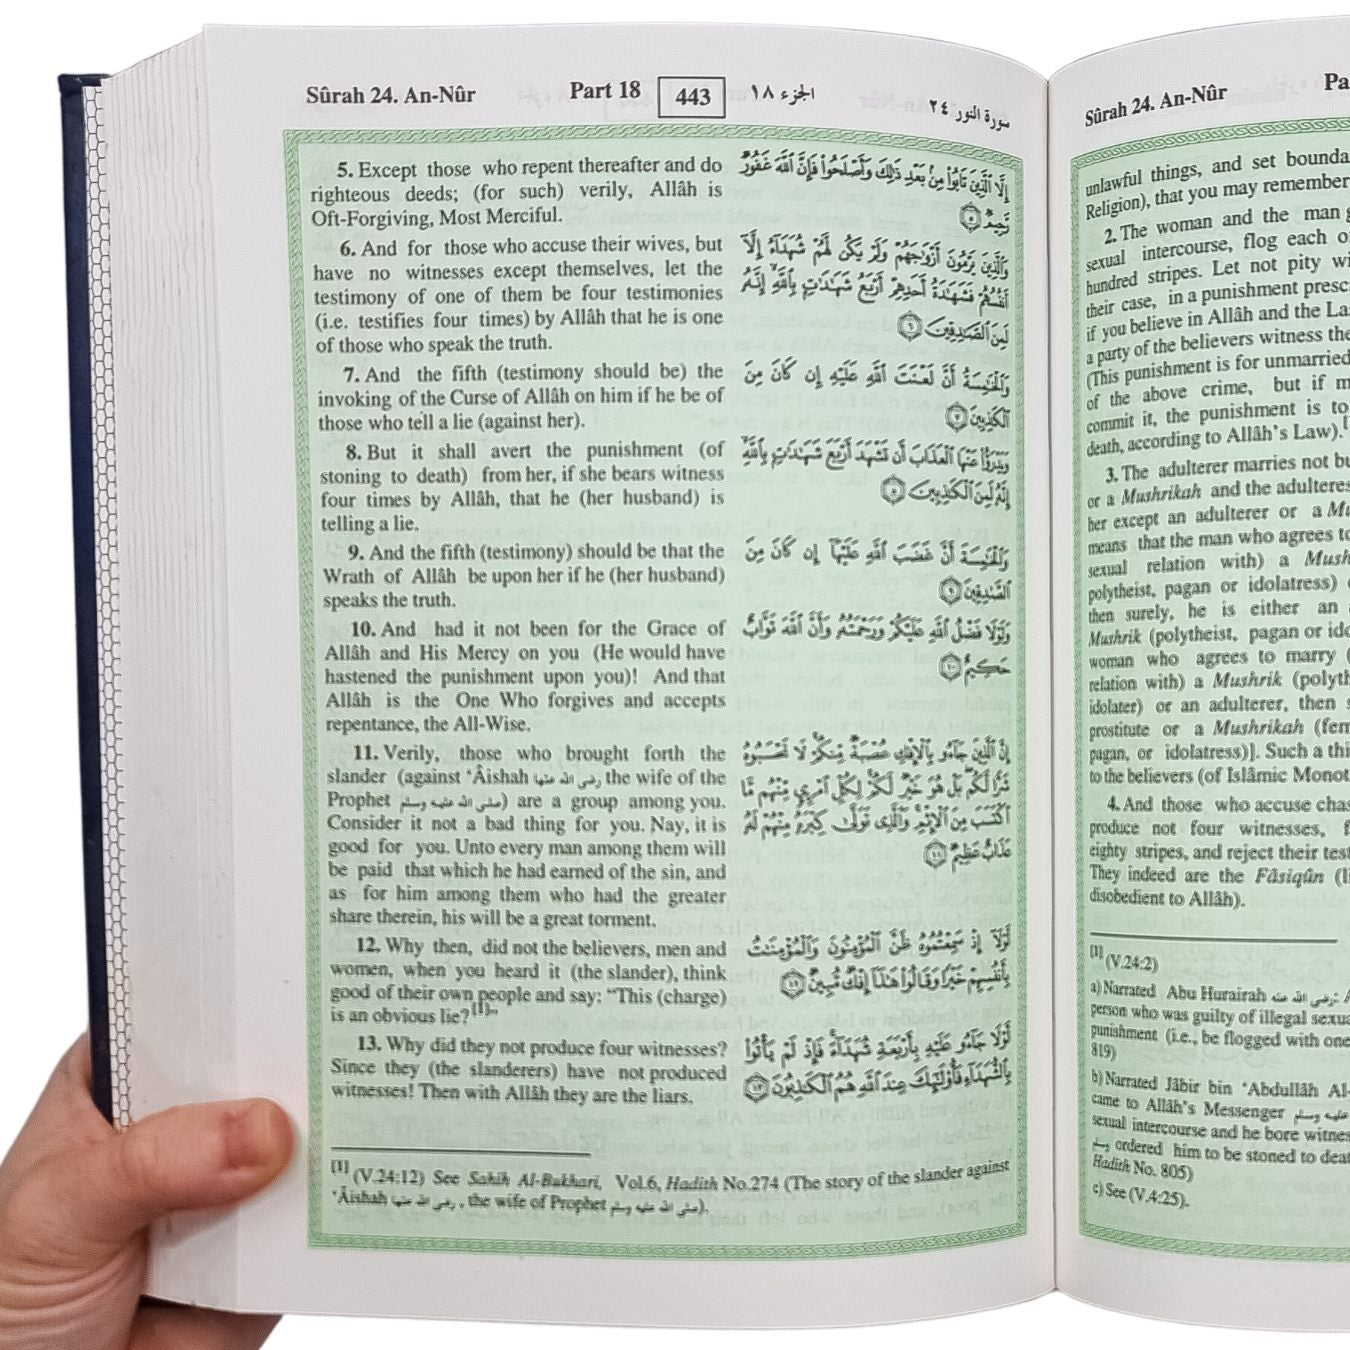 Sûrah 24. An-Nûr
Part 18
443
الجزء ١٨
سورة النور ٢٤
5. Except those who repent thereafter and do
righteous deeds; (for such) verily, Allâh is
Oft-Forgiving, Most Merciful.
6. And for those who accuse their wives, but
have no witnesses except themselves, let the
testimony of one of them be four testimonies
(i.e. testifies four times) by Allâh that he is one
of those who speak the truth.
7. And the fifth (testimony should be) the
invoking of the Curse of Allâh on him if he be of
those who tell a lie (against her).
8. But it shall avert the punishment (of
stoning to death) from her, if she bears witness
four times by Allâh, that he (her husband) is
telling a lie.
9. And the fifth (testimony) should be that the
Wrath of Allâh be upon her if he (her husband)
speaks the truth.
10. And had it not been for the Grace of
Allâh and His Mercy on you (He would have
hastened the punishment upon you)! And that
Allâh is the One Who forgives and accepts
repentance, the All-Wise.
11. Verily, those who brought forth the
slander (against ‘Âishah رضى الله عنها the wife of the
Prophet صلى الله عليه وسلم) are a group among you.
Consider it not a bad thing for you. Nay, it is
good for you. Unto every man among them will
be paid that which he had earned of the sin, and
as for him among them who had the greater
share therein, his will be a great torment.
12. Why then, did not the believers, men and
women, when you heard it (the slander), think
good of their own people and say: “This (charge)
is an obvious lie?[1]”
13. Why did they not produce four witnesses?
Since they (the slanderers) have not produced
witnesses! Then with Allâh they are the liars.
إِلَّا ٱلَّذِينَ تَابُوا۟ مِنۢ بَعْدِ ذَٰلِكَ وَأَصْلَحُوا۟ فَإِنَّ ٱللَّهَ غَفُورٌ
رَّحِيمٌ ٥
وَٱلَّذِينَ يَرْمُونَ أَزْوَٰجَهُمْ وَلَمْ يَكُن لَّهُمْ شُهَدَآءُ إِلَّآ
أَنفُسُهُمْ فَشَهَٰدَةُ أَحَدِهِمْ أَرْبَعُ شَهَٰدَٰتٍۭ بِٱللَّهِ إِنَّهُۥ
لَمِنَ ٱلصَّٰدِقِينَ ٦
وَٱلْخَٰمِسَةُ أَنَّ لَعْنَتَ ٱللَّهِ عَلَيْهِ إِن كَانَ مِنَ
ٱلْكَٰذِبِينَ ٧
وَيَدْرَؤُا۟ عَنْهَا ٱلْعَذَابَ أَن تَشْهَدَ أَرْبَعَ شَهَٰدَٰتٍۭ بِٱللَّهِ
إِنَّهُۥ لَمِنَ ٱلْكَٰذِبِينَ ٨
وَٱلْخَٰمِسَةَ أَنَّ غَضَبَ ٱللَّهِ عَلَيْهَآ إِن كَانَ مِنَ
ٱلصَّٰدِقِينَ ٩
وَلَوْلَا فَضْلُ ٱللَّهِ عَلَيْكُمْ وَرَحْمَتُهُۥ وَأَنَّ ٱللَّهَ تَوَّابٌ
حَكِيمٌ ١٠
إِنَّ ٱلَّذِينَ جَآءُو بِٱلْإِفْكِ عُصْبَةٌ مِّنكُمْ لَا تَحْسَبُوهُ
شَرًّا لَّكُم بَلْ هُوَ خَيْرٌ لَّكُمْ لِكُلِّ ٱمْرِئٍ مِّنْهُم مَّا
ٱكْتَسَبَ مِنَ ٱلْإِثْمِ وَٱلَّذِى تَوَلَّىٰ كِبْرَهُۥ مِنْهُمْ لَهُۥ
عَذَابٌ عَظِيمٌ ١١
لَّوْلَآ إِذْ سَمِعْتُمُوهُ ظَنَّ ٱلْمُؤْمِنُونَ وَٱلْمُؤْمِنَٰتُ
بِأَنفُسِهِمْ خَيْرًا وَقَالُوا۟ هَٰذَآ إِفْكٌ مُّبِينٌ ١٢
لَّوْلَا جَآءُو عَلَيْهِ بِأَرْبَعَةِ شُهَدَآءَ فَإِذْ لَمْ يَأْتُوا۟
بِٱلشُّهَدَآءِ فَأُو۟لَٰٓئِكَ عِندَ ٱللَّهِ هُمُ ٱلْكَٰذِبُونَ ١٣
[1] (V.24:12) See Sahih Al-Bukhari, Vol.6, Hadith No.274 (The story of the slander against
‘Âishah رضى الله عنها, the wife of Prophet صلى الله عليه وسلم).
Sûrah 24. An-Nûr
unlawful things, and set
Religion), that you may remember
2. The woman and the man
sexual intercourse, flog each
hundred stripes. Let not pity
their case, in a punishment
if you believe in Allâh and the
a party of the believers witness
(This punishment is for unmarried
of the above crime, but if
commit it, the punishment is to
death, according to Allâh’s Law).
3. The adulterer marries not
or a Mushrikah and the
her except an adulterer or a
means that the man who agrees
sexual relation with) a
polytheist, pagan or idolatress)
then surely, he is either an
Mushrik (polytheist, pagan or
woman who agrees to marry
relation with) a Mushrik
idolater) or an adulterer, then
prostitute or a Mushrikah
pagan, or idolatress)]. Such a
to the believers (of Islâmic
4. And those who accuse
produce not four witnesses,
eighty stripes, and reject their
They indeed are the Fâsiqûn
disobedient to Allâh).
[1] (V.24:2)
a) Narrated Abu Hurairah رضى الله عنه:
person who was guilty of illegal
punishment (i.e., be flogged with one
819)
b) Narrated Jâbir bin ‘Abdullâh
came to Allâh’s Messenger
sexual intercourse and he bore
ordered him to be stoned to
Hadith No. 805)
c) See (V.4:25).